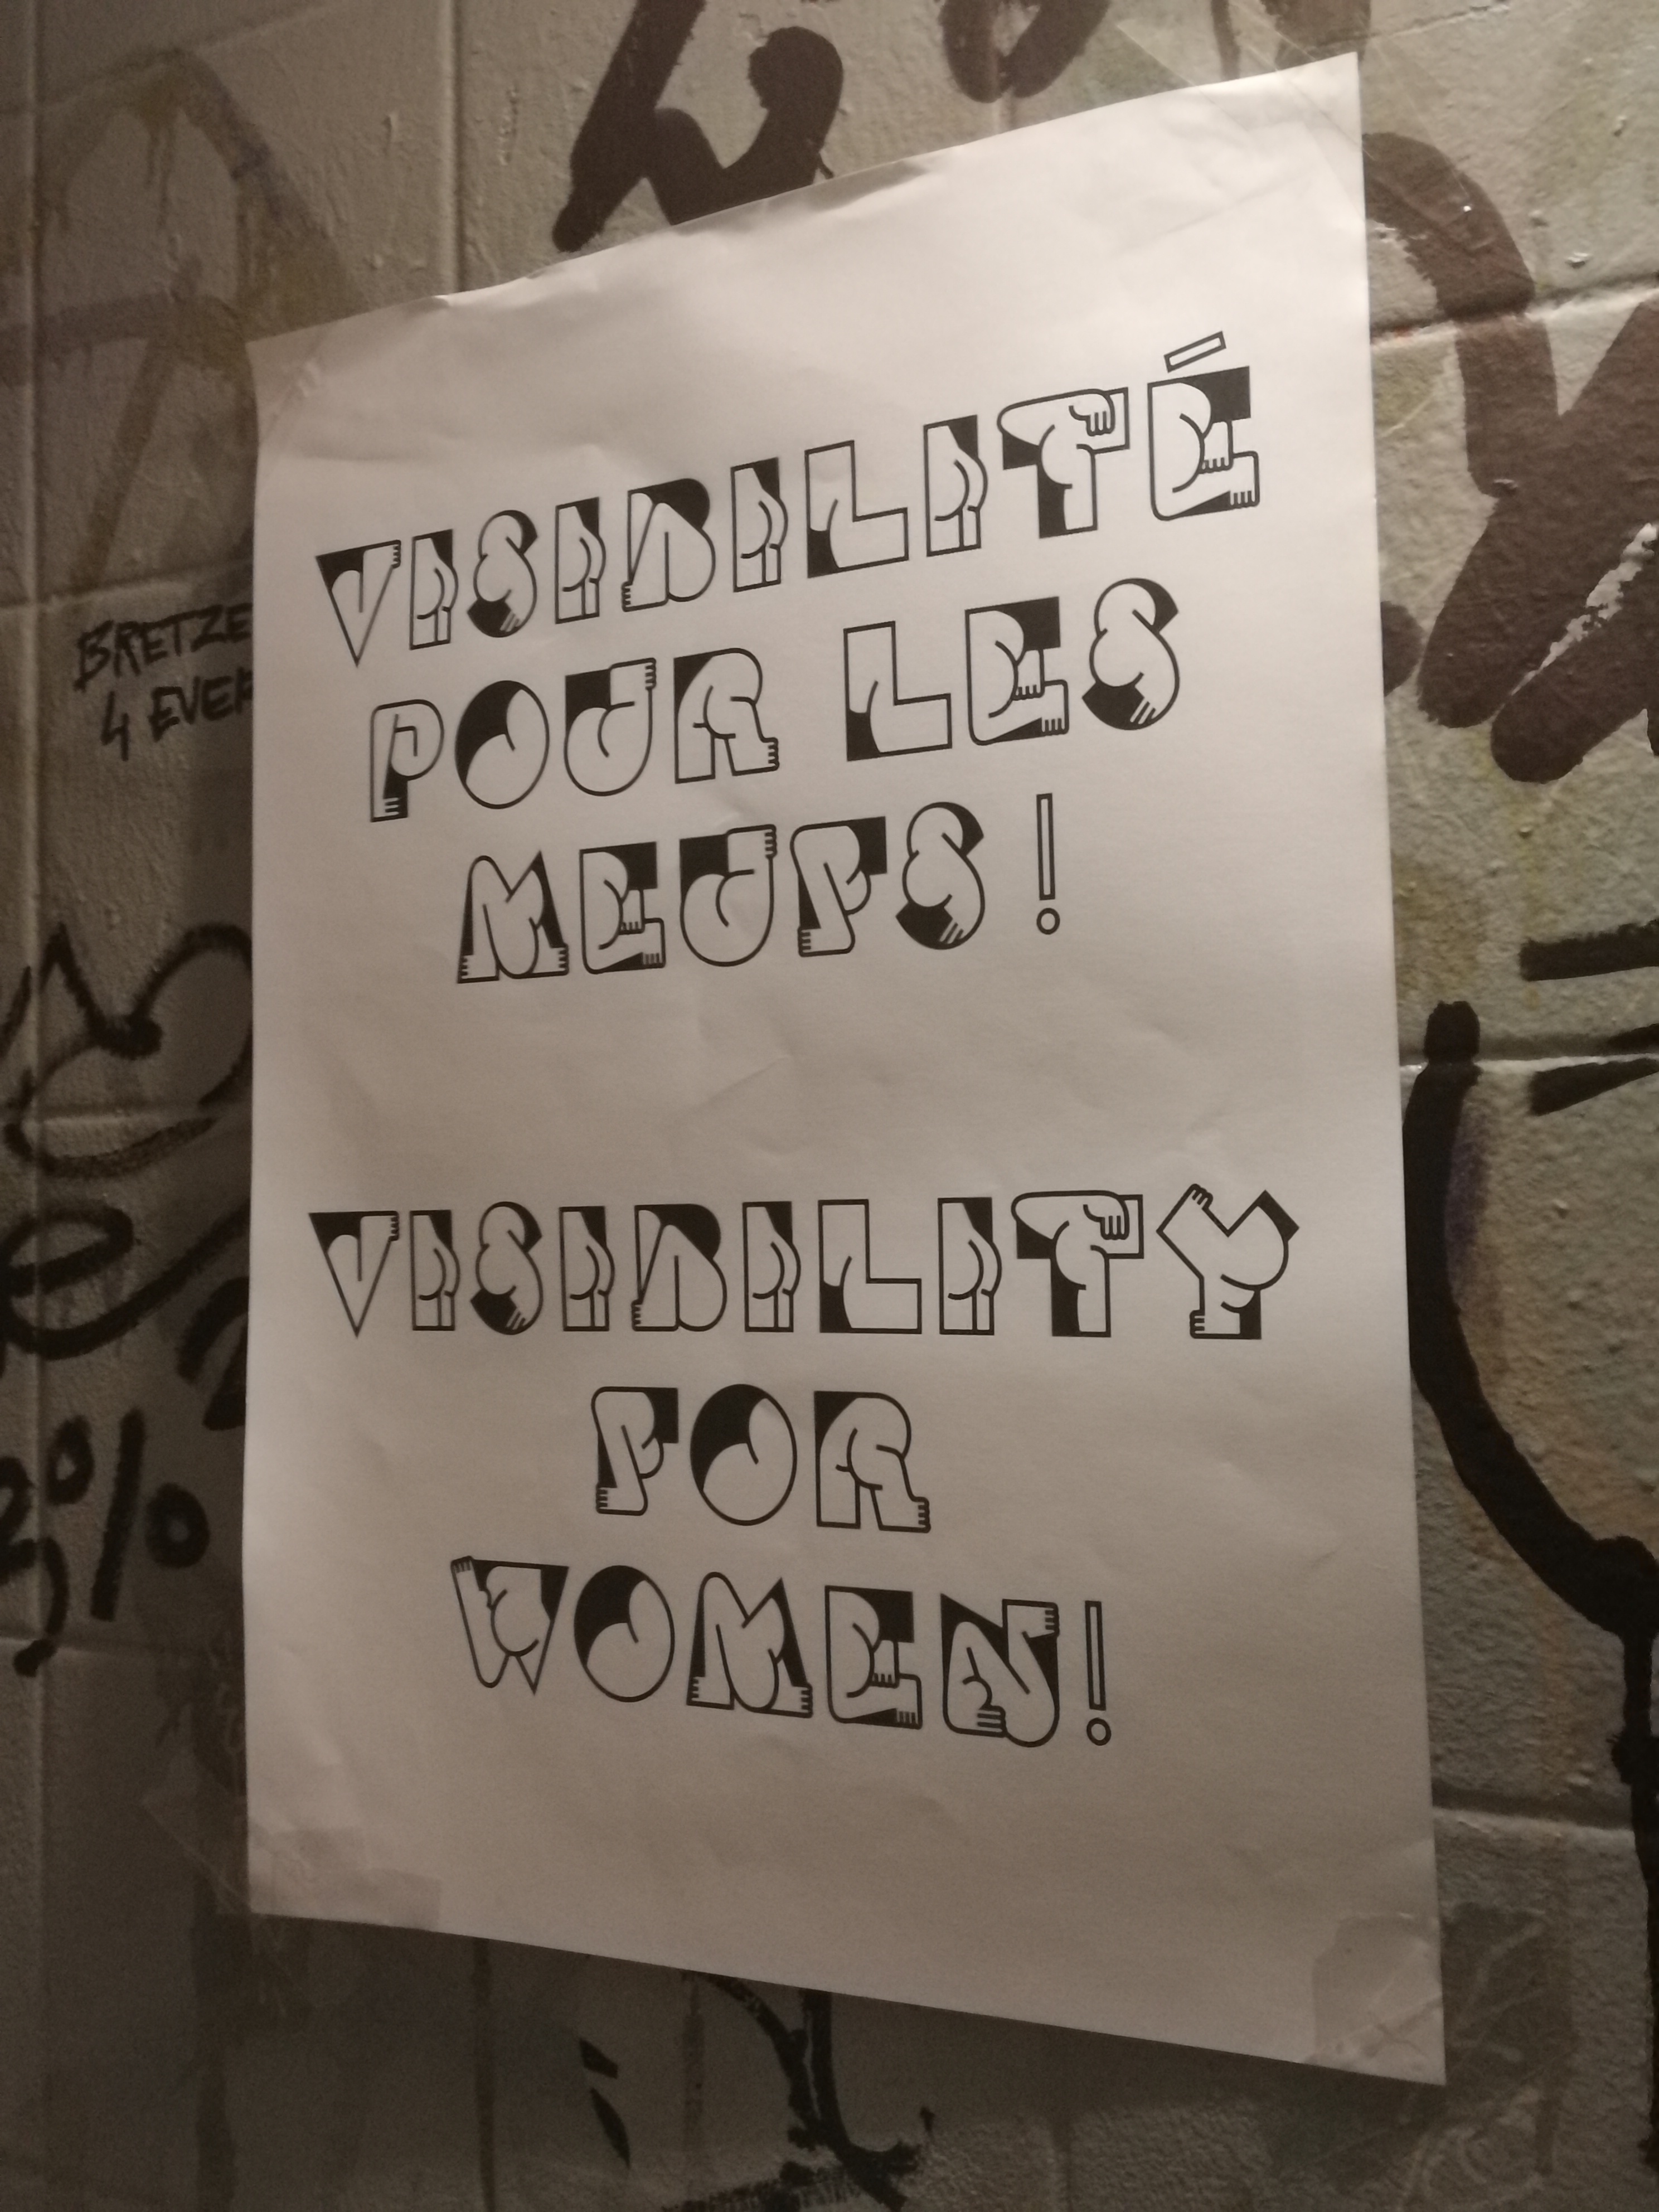 VISIBILITÉ
POUR LES
MEUFS !
VISIBILITY
FOR
WOMEN!
BRETZE
4 EVER